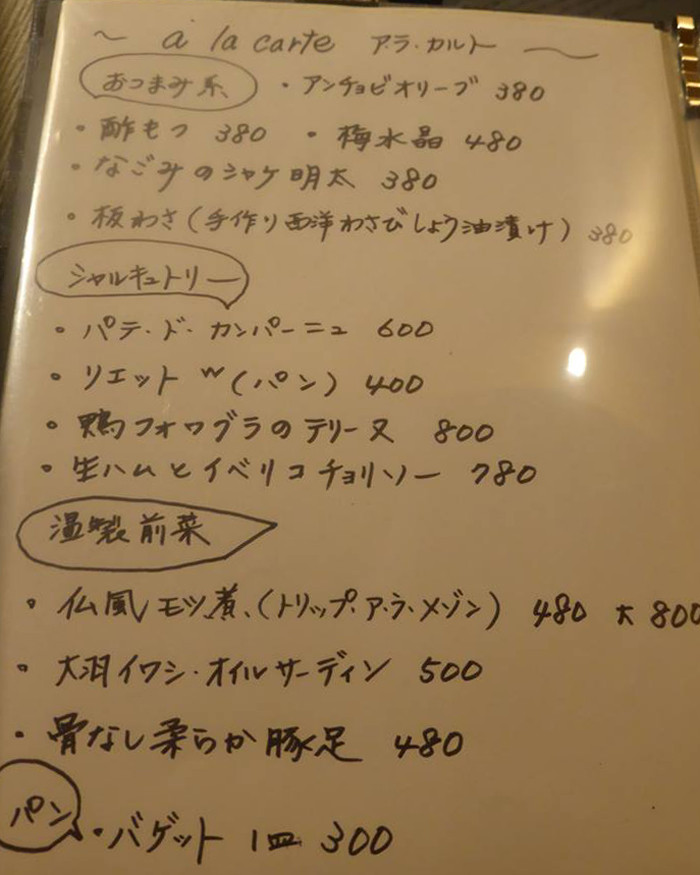 ~ à la carte アラ・カルト ~
おつまみ系 ・アンチョビオリーブ 380
・酢もつ 380 ・梅水晶 480
・なごみのシャケ明太 380
・板わさ(手作り西洋わさびしょう油漬け) 380
シャルキュトリー
・パテ・ド・カンパーニュ 600
・リエット w(パン) 400
・鴨フォワグラのテリーヌ 800
・生ハムとイベリコチョリソー 780
温製前菜
・仏風モツ煮(トリップ・ア・ラ・メゾン) 480 大 800
・大羽イワシ・オイルサーディン 500
・骨なし柔らか豚足 480
パン ・バゲット 1皿 300